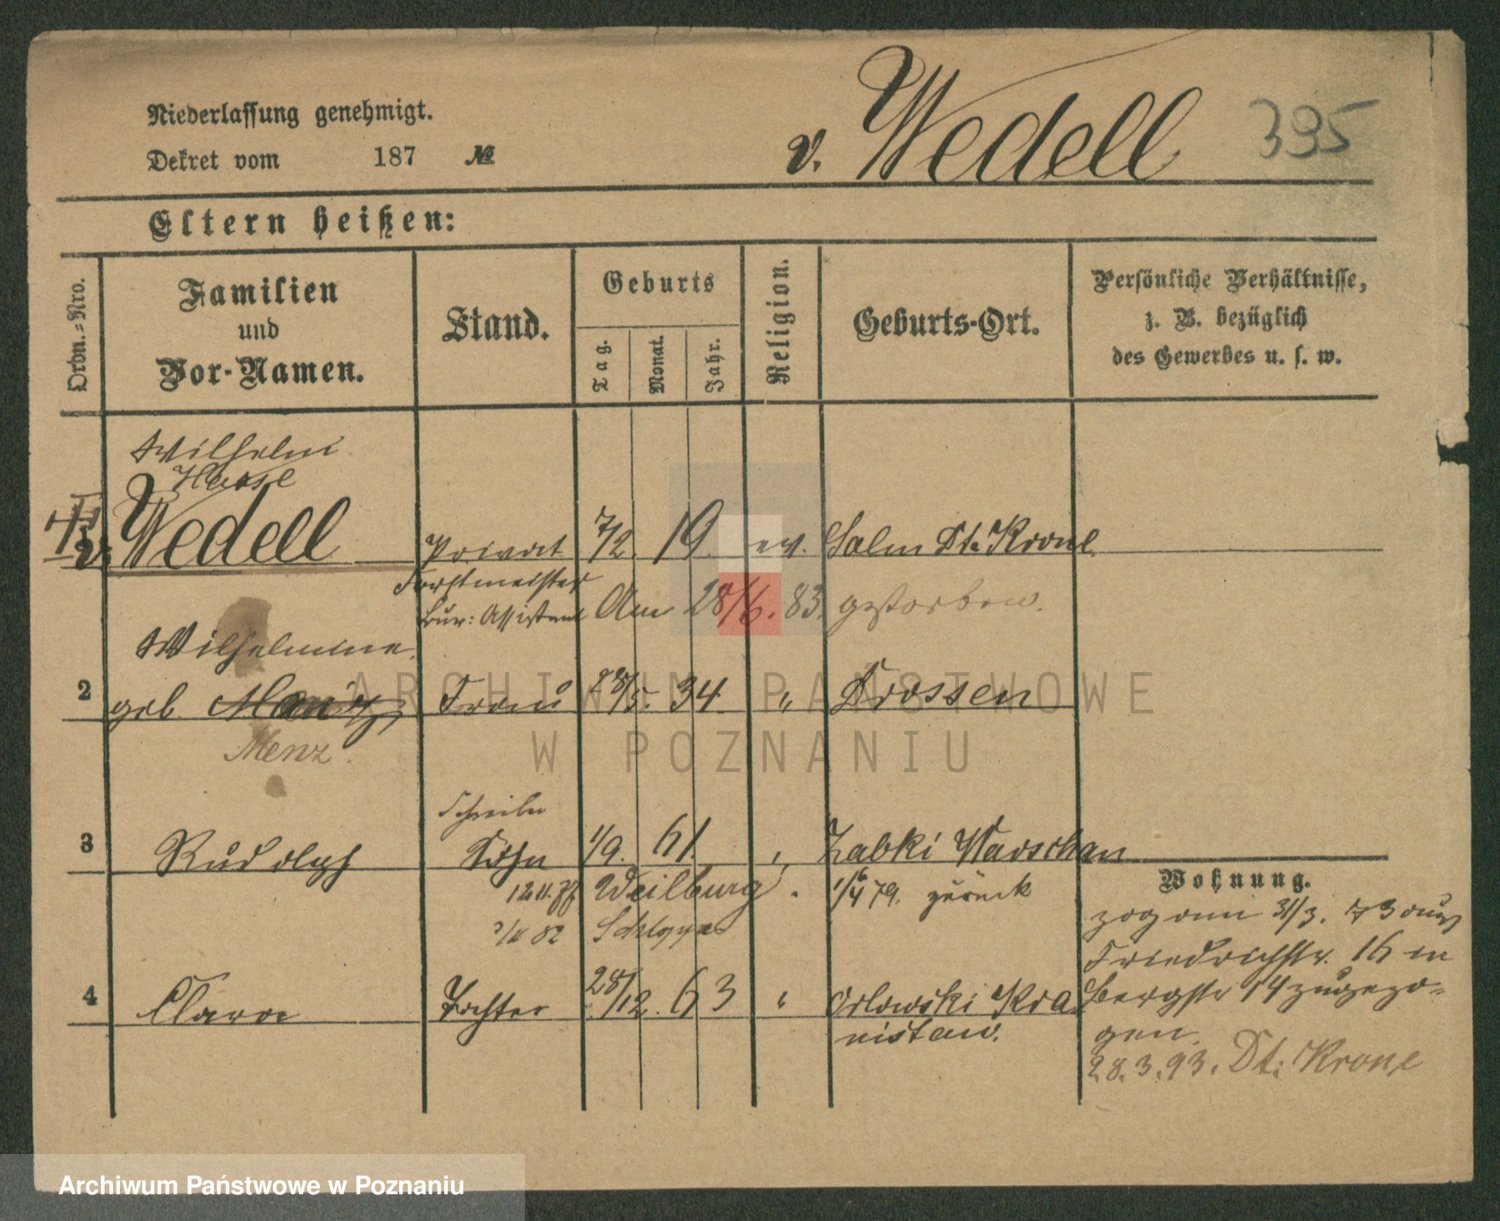 Niederlassung genehmigt.
Dekret vom 187 №
v. Wedell 395
Eltern heißen:
Ordn.-Nro.
Familien
und
Vor-Namen.
Stand.
Geburts
Tag.
Monat.
Jahr.
Religion.
Geburts-Ort.
Persönliche Verhältnisse,
z. B. bezüglich
des Gewerbes u. s. w.
Wilhelm
v. Wedell Privat 7/2. 19. ev. Salm Dt. Krone
Forstmeister
Bur: Assistent Am 28/6. 83. gestorben.
Wilhelmine
2 geb. Frau 28/5. 34. " Drossen
Menz.
Schreiber
3 Rudolph Sohn 1/9. 61 " Zabki Warschau
Weilburg 79. zurück
82
4 Clara Tochter 28/12. 63 " Orlowski Kra
nistaw.
Wohnung.
zog am 31/3. 73 aus
Friedrichstr. 16 in
Bergstr 14 zugezo=
gen.
28.3.93. Dt: Krone
ARCHIWUM PAŃSTWOWE
W POZNANIU
Archiwum Państwowe w Poznaniu